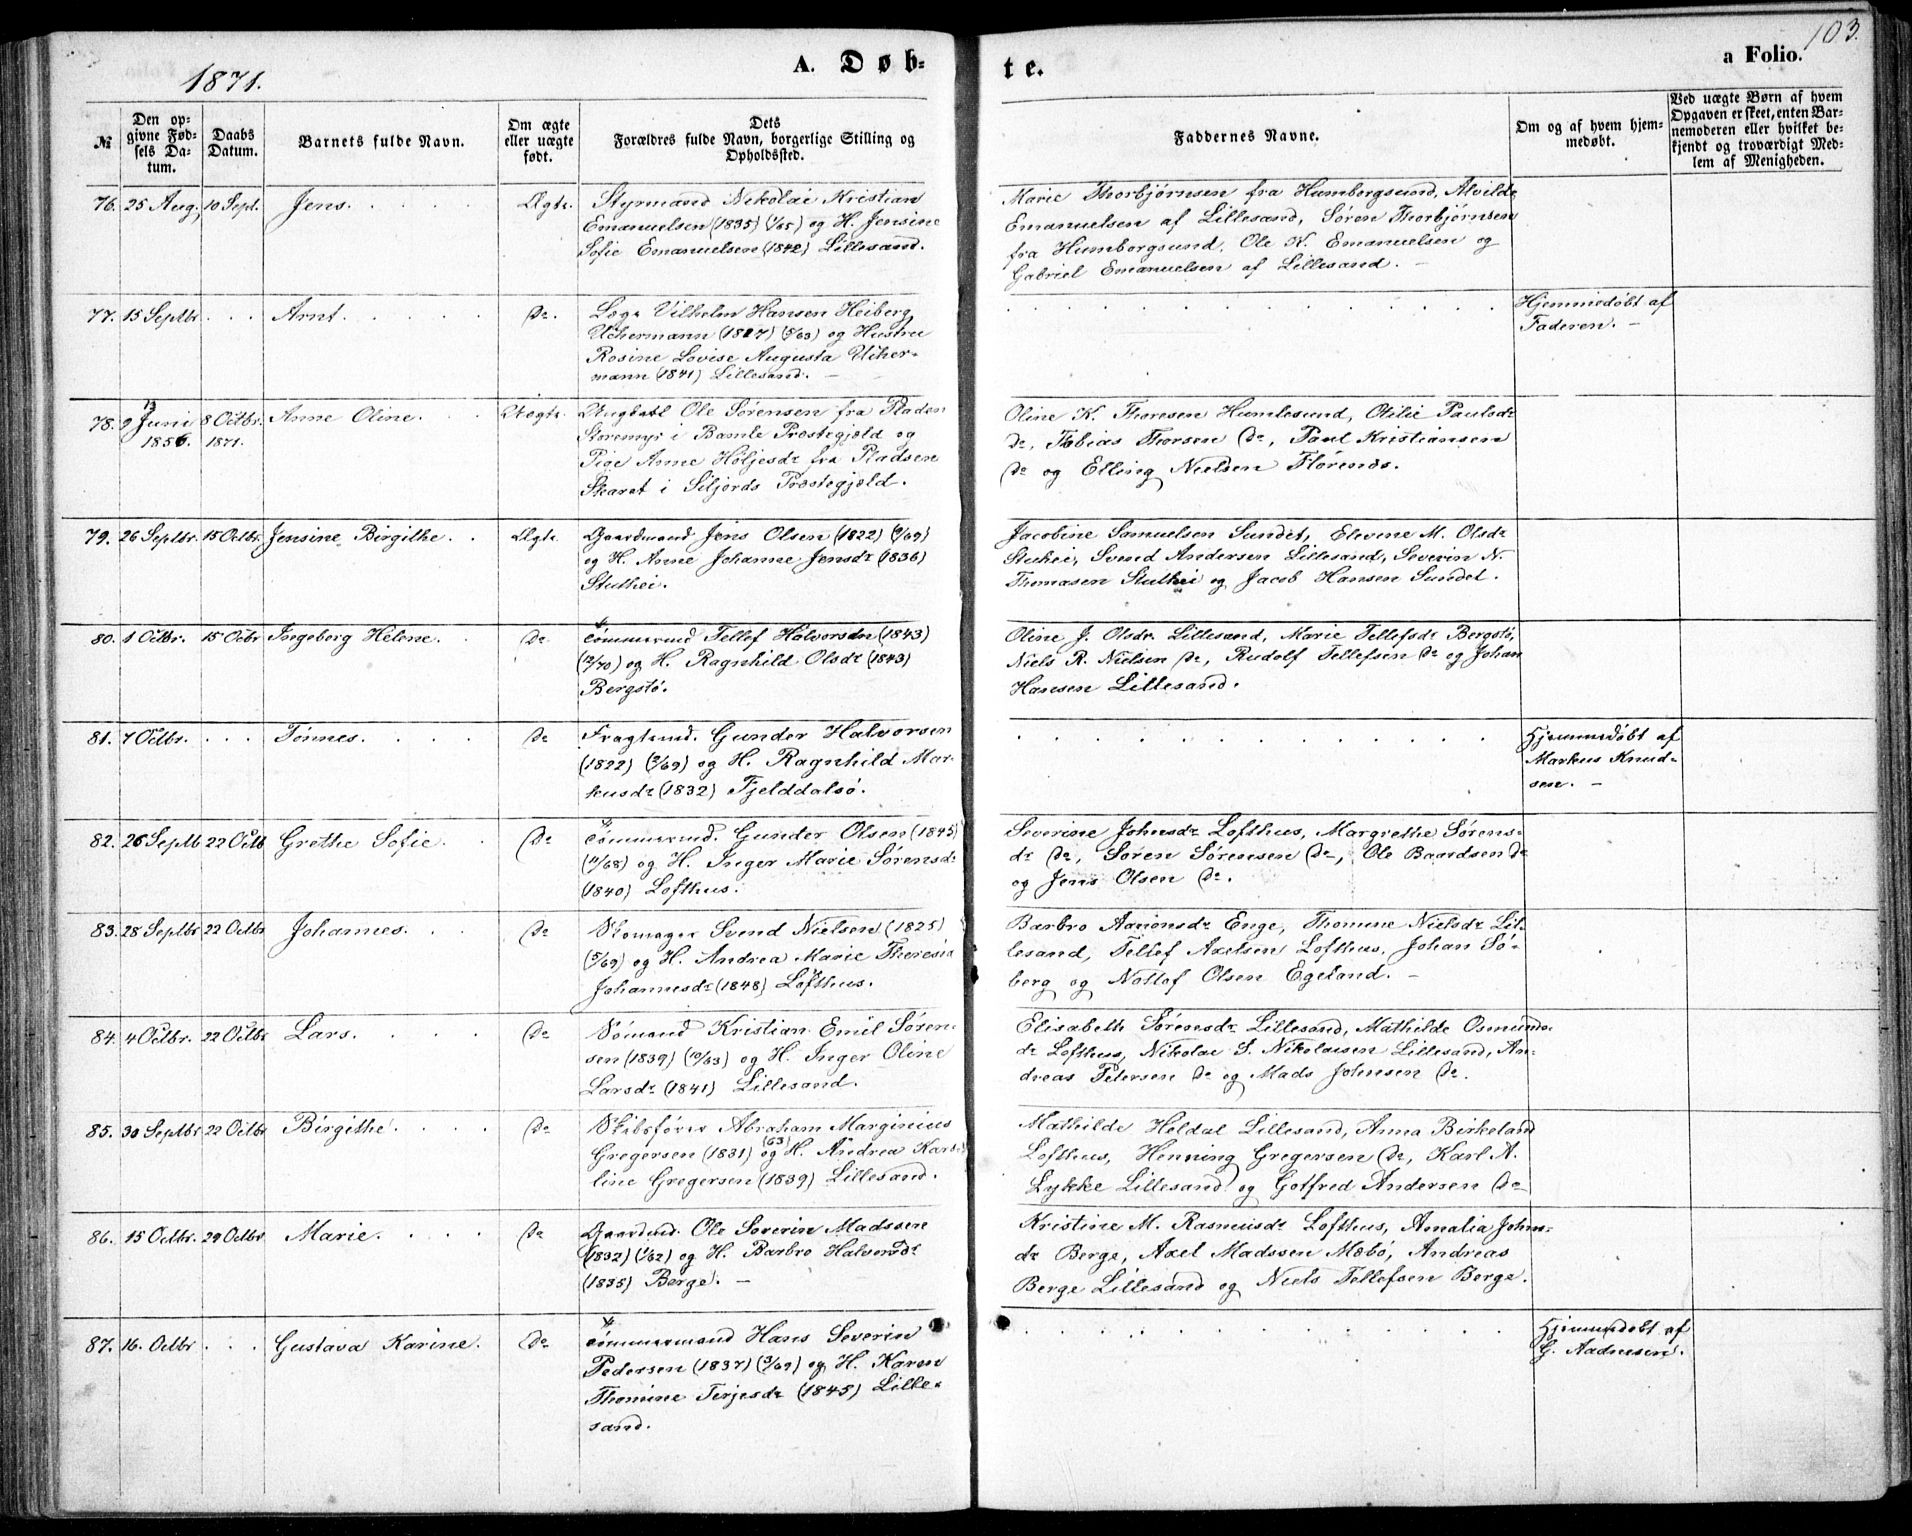 1871.
A. Døb-
te.
a Folio.
103.
№
Den opgivne Fødsels Datum.
Daabs Datum.
Barnets fulde Navn.
Om ægte eller uægte født.
Dets Forældres fulde Navn, borgerlige Stilling og Opholdssted.
Faddernes Navne.
Om og af hvem hjemmedøbt.
Ved uægte Børn af hvem Opgaven er skeet, enten Barnemoderen eller hvilket bekjendt og troværdigt Medlem af Menigheden.
76. 25 Aug. 10 Sept. Jens. Ægte.
Styrmand Nikolai Kristian
Emanuelsen (1835) (1/65) og H. Jensine
Sofie Emanuelsen (1842) Lillesand.
Marie Thorbjørnsen fra Humborgsund, Alvilde
Emanuelsen af Lillesand, Søren Thorbjørnsen
fra Humborgsund, Ole N. Emanuelsen og
Gabriel Emanuelsen af Lillesand. –
77. 15 Septbr. Arnt. Do.
Læge Vilhelm Hansen Heiberg
Uchermann (1827) (5/63) og Hustru
Rosine Lovise Augusta Ucher-
mann (1841) Lillesand. –
Hjemmedøbt af
Faderen. –
78. 9 Juni 1856. 8 Octbr. 1871. Anne Oline. Uægte.
Ungkarl Ole Sørensen fra Pladsen
Storemyr i Bamle Præstegjeld og
Pige Anne Høljesdr fra Pladsen
Skaret i Siljords Præstegjæld.
Oline K. Thoresen Humlesund, Otilie Paulsdr
do, Tobias Thorsen do, Paul Kristiansen
do og Elling Nielsen Flørenæs.
79. 26 Septbr. 15 Octbr. Jensine Birgithe. Ægte.
Gaardmand Jens Olsen (1822) (9/69)
og H. Anne Johanne Jensdr (1836)
Stuthei.
Jacobine Samuelsen Sundet, Elevine M. Olsdr
Stuthei, Svend Andersen Lillesand, Severin N.
Thomasen Stuthei og Jacob Hansen Sundet.
80. 1 Octbr. 15 Octbr Ingeborg Helene. Do
Tømmermd Tellef Halvorsen (1843)
(12/70) og H. Ragnhild Olsdr (1843)
Bergstø.
Oline J. Olsdr. Lillesand, Marie Tellefsdr Bergstø,
Niels R. Nielsen do, Rudolf Tellefsen do og Johan
Hansen Lillesand.
81. 7 Octbr. Tønnes. Do
Fragtemd. Gunder Halvorsen
(1822) (2/69) og H. Ragnhild Mar-
kusdr (1832) Fjelddalsø.
Hjemmedøbt af
Markus Knud-
sen. –
82. 26 Septb 22 Octb Grethe Sofie. Do
Tømmermd. Gunder Olsen (1845)
(11/68) og H. Inger Marie Sørensdr
(1840) Lofthus.
Severine Johnsdr Lofthus, Margrethe Sørens-
dr do, Søren Sørensen do, Ole Baardsen do
og Jens Olsen do.
83. 28 Septbr 22 Octbr Johannes. Do
Skomager Svend Nielsen (1825)
(5/69) og H. Andrea Marie Theresia
Johannesdr (1848) Lofthus.
Barbro Aanonsdr Enge, Thomine Nielsdr Lil-
lesand, Tellef Axelsen Lofthus, Johan Sø-
berg og Notlof Olsen Egeland. –
84. 4 Octbr. 22 Octbr Lars. Do
Sømand Kristian Emil Søren-
sen (1839) (10/63) og H. Inger Oline
Larsdr (1841) Lillesand.
Elisabeth Sørensdr Lillesand, Mathilde Osmunds-
dr Lofthus, Nikolai S. Nikolaisen Lillesand, An-
dreas Petersen do og Mads Johnsen do.
85. 30 Septbr 22 Octbr Birgithe. Do
Skibsfører Abraham Marginius
Gregersen (1831) (63) og H. Andrea Karo-
line Gregersen (1839) Lillesand.
Mathilde Heldal Lillesand, Anna Birkeland
Lofthus, Henning Gregersen do, Karl A.
Lykke Lillesand og Gotfred Andersen do
86. 15 Octbr. 29 Octbr. Marie. Do
Gaardmd. Ole Severin Madssen
(1832) (1/62) og H. Barbro Halvorsdr
(1835) Berge. –
Kristine M. Rasmusdr Lofthus, Amalia John-
dr Berge, Axel Madssen Mæbø, Andreas
Berge Lillesand og Niels Tellefsen Berge.
87. 16. Octbr Gustava Karine. Do
Tømmermand Hans Severin
Pedersen (1837) (3/69) og H. Karen
Thomine Terjesdr (1845) Lille-
sand.
Hjemmedøbt af
G. Aadnesen.